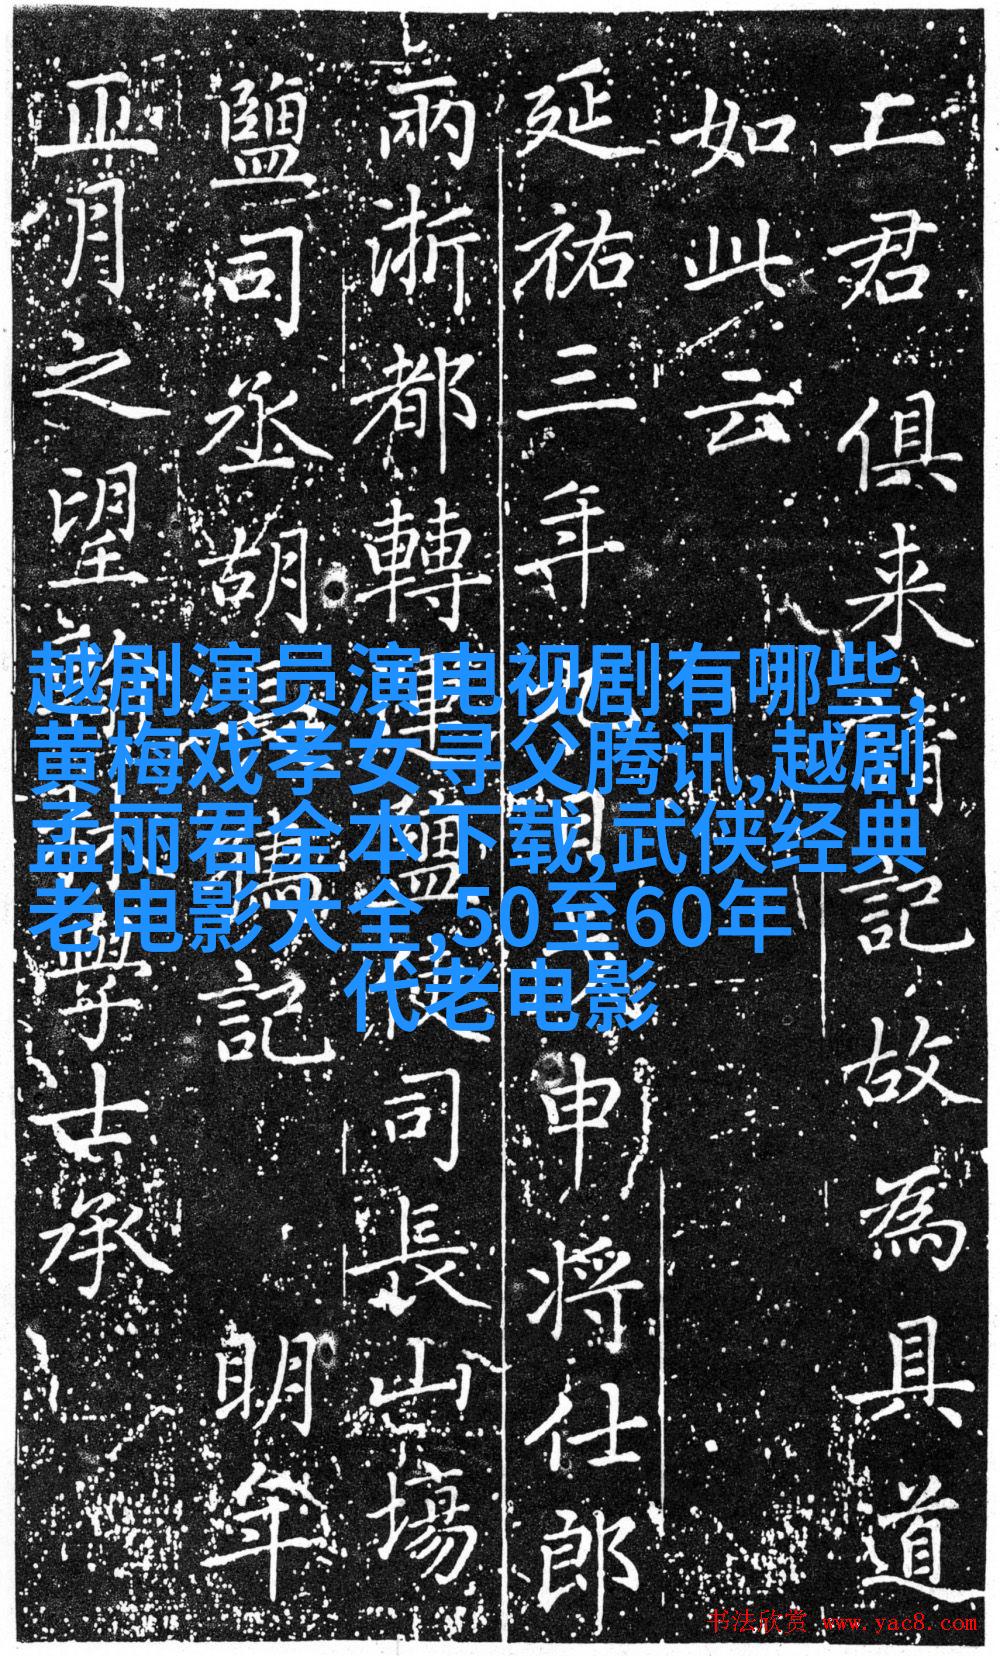 君俱来記故為具道
如此云
延祐三年申将仕郎
兩浙都轉運鹽使司長山場
鹽司丞胡記 明年
正月之望學士承
越剧演员演电视剧有哪些,
黄梅戏孝女寻父腾讯,越剧
孟丽君全本下载,武侠经典
老电影大全,50至60年
代老电影
书法欣赏 www.yac8.com